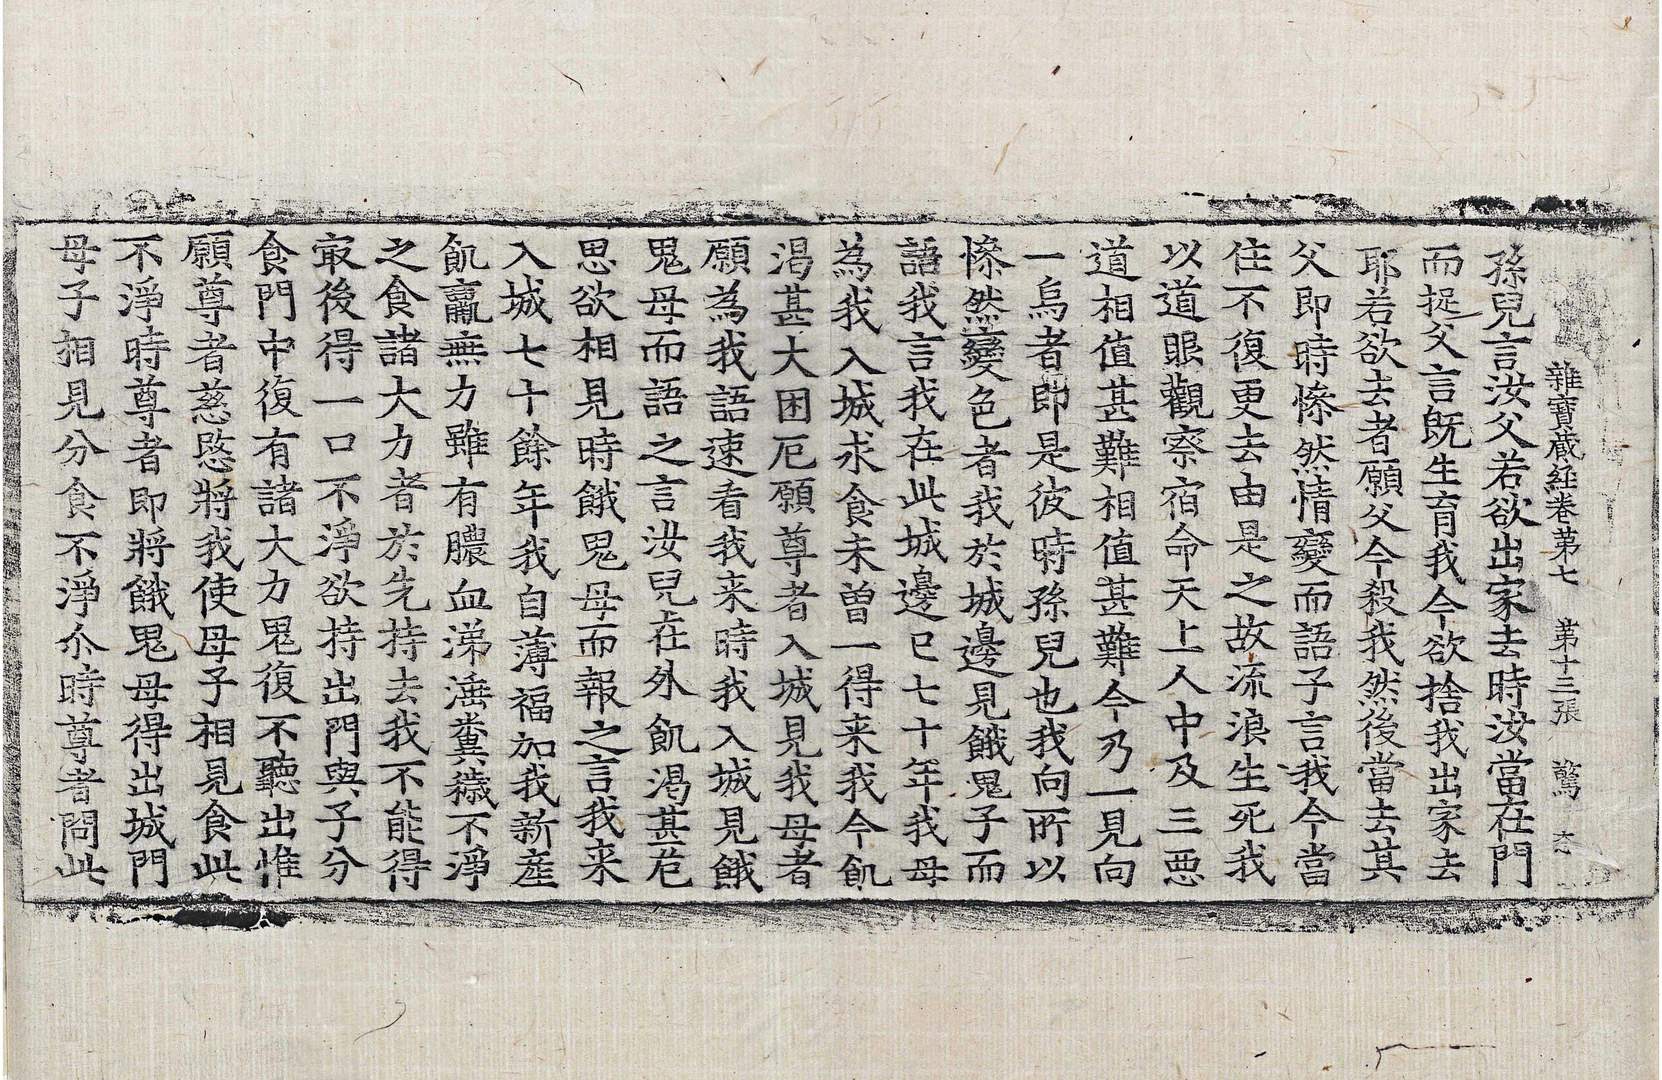 雜寶蔵經卷第七 第十三張 驚
孫兒言汝父若欲出家去時汝當在門
而捉父言旣生育我今欲捨我出家去
耶若欲去者願父今殺我然後當去其
父即時慘然情變而語子言我今當
住不復更去由是之故流浪生死我
以道眼觀察宿命天上人中及三惡
道相值甚難相值甚難今乃一見向
一烏者即是彼時孫兒也我向所以
慘然變色者我於城邊見餓鬼子而
語我言我在此城邊已七十年我母
為我入城求食未曾一得来我今飢
渴甚大困厄願尊者入城見我母者
願為我語速看我来時我入城見餓
鬼母而語之言汝兒在外飢渴甚危
思欲相見時餓鬼母而報之言我来
入城七十餘年我自薄福加我新產
飢羸無力雖有膿血涕唾糞穢不淨
之食諸大力者於先持去我不能得
㝡後得一口不淨欲持出門與子分
食門中復有諸大力鬼復不聽出惟
願尊者慈愍將我使母子相見食此
不淨時尊者即將餓鬼母得出城門
母子相見分食不淨尒時尊者問此